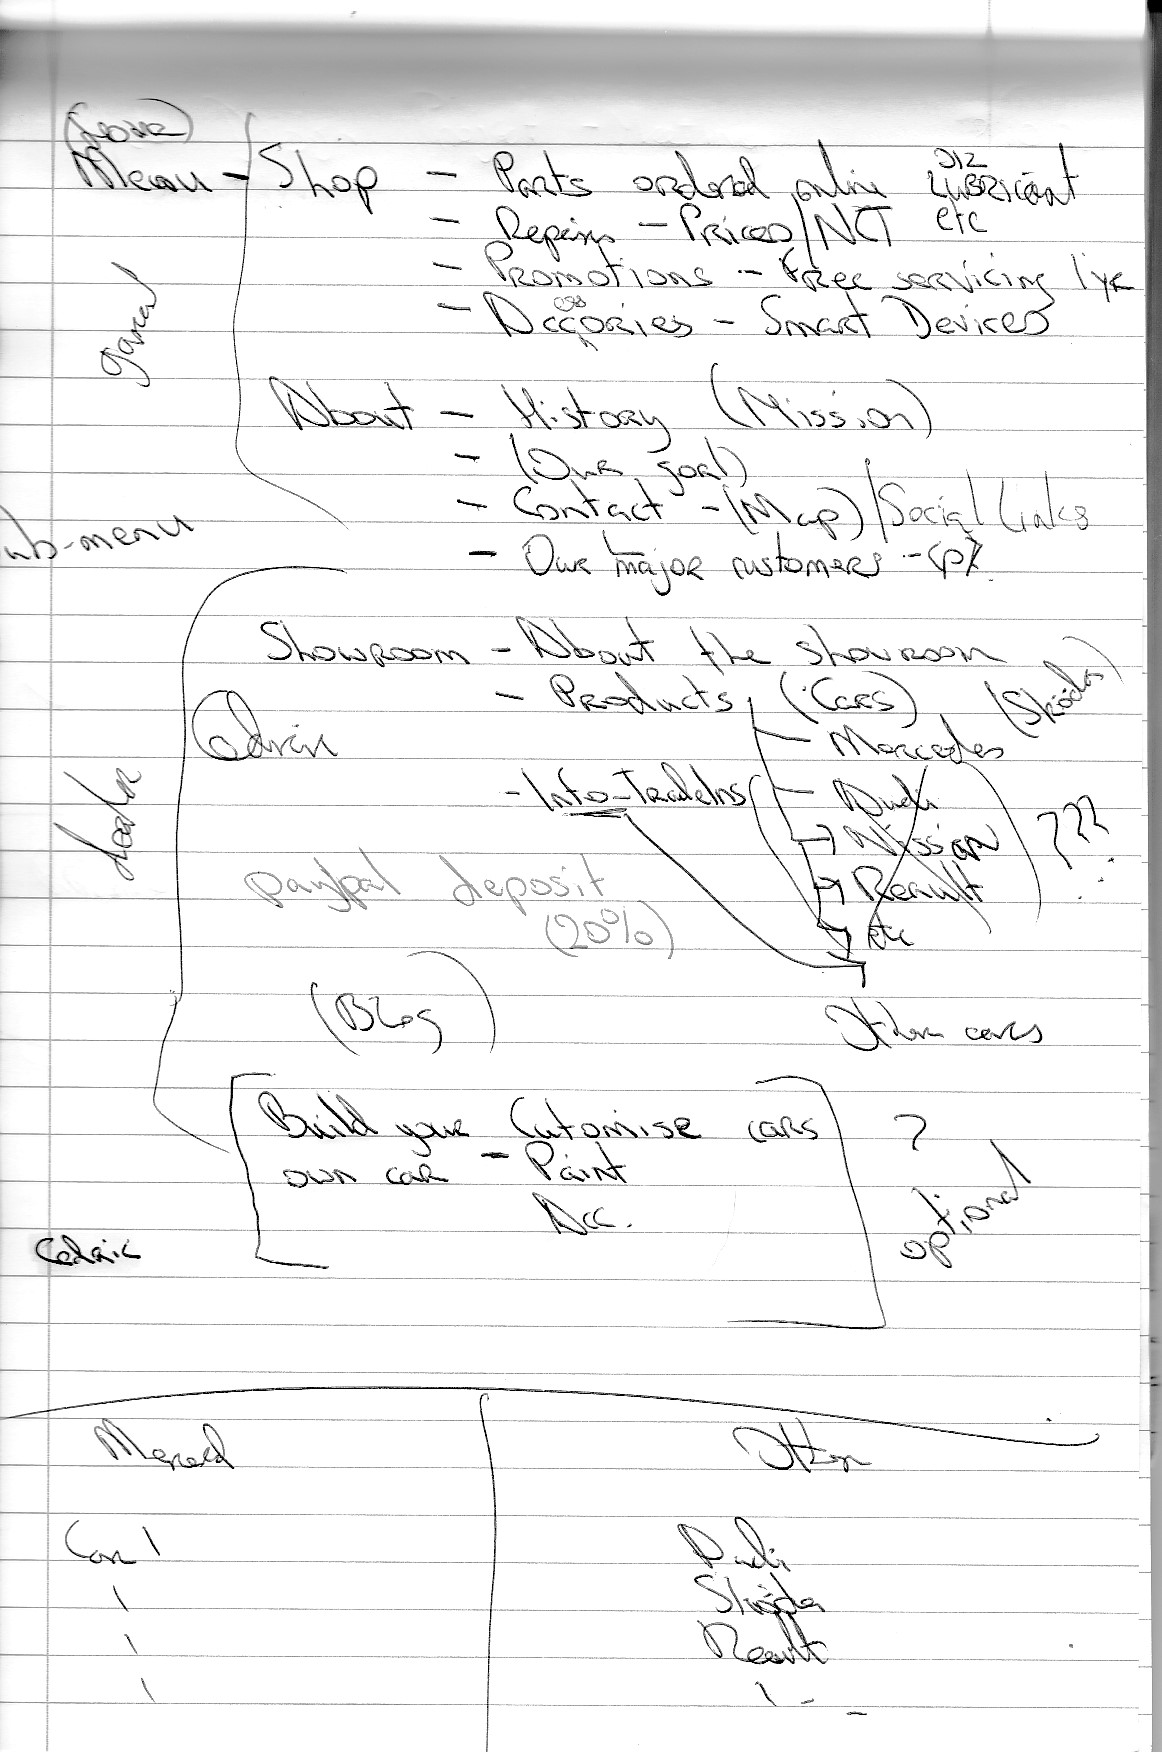 (Home)
Menu - Shop - Parts ordered online OIL LUBRICANT etc
- Repairs - Prices/NCT
- Promotions - Free servicing 1 yr
- Accessories - Smart Devices
About - History (Mission)
- (Our goal)
- Contact - (Map)/Social Links
- Our major customers -
Sub-menu
Showroom - About the showroom
- Products (Cars)
(Skoda)
- Mercedes
Cedric
- Info-TradeIns
- Audi
Nissan
Renault
etc
???
paypal deposit
(20%)
(Blog)
Other cars
Build your Cutomise cars ?
own car - Paint
Acc.
optional
Cedric
Merced Other
Car 1 Audi
Skoda
Renault